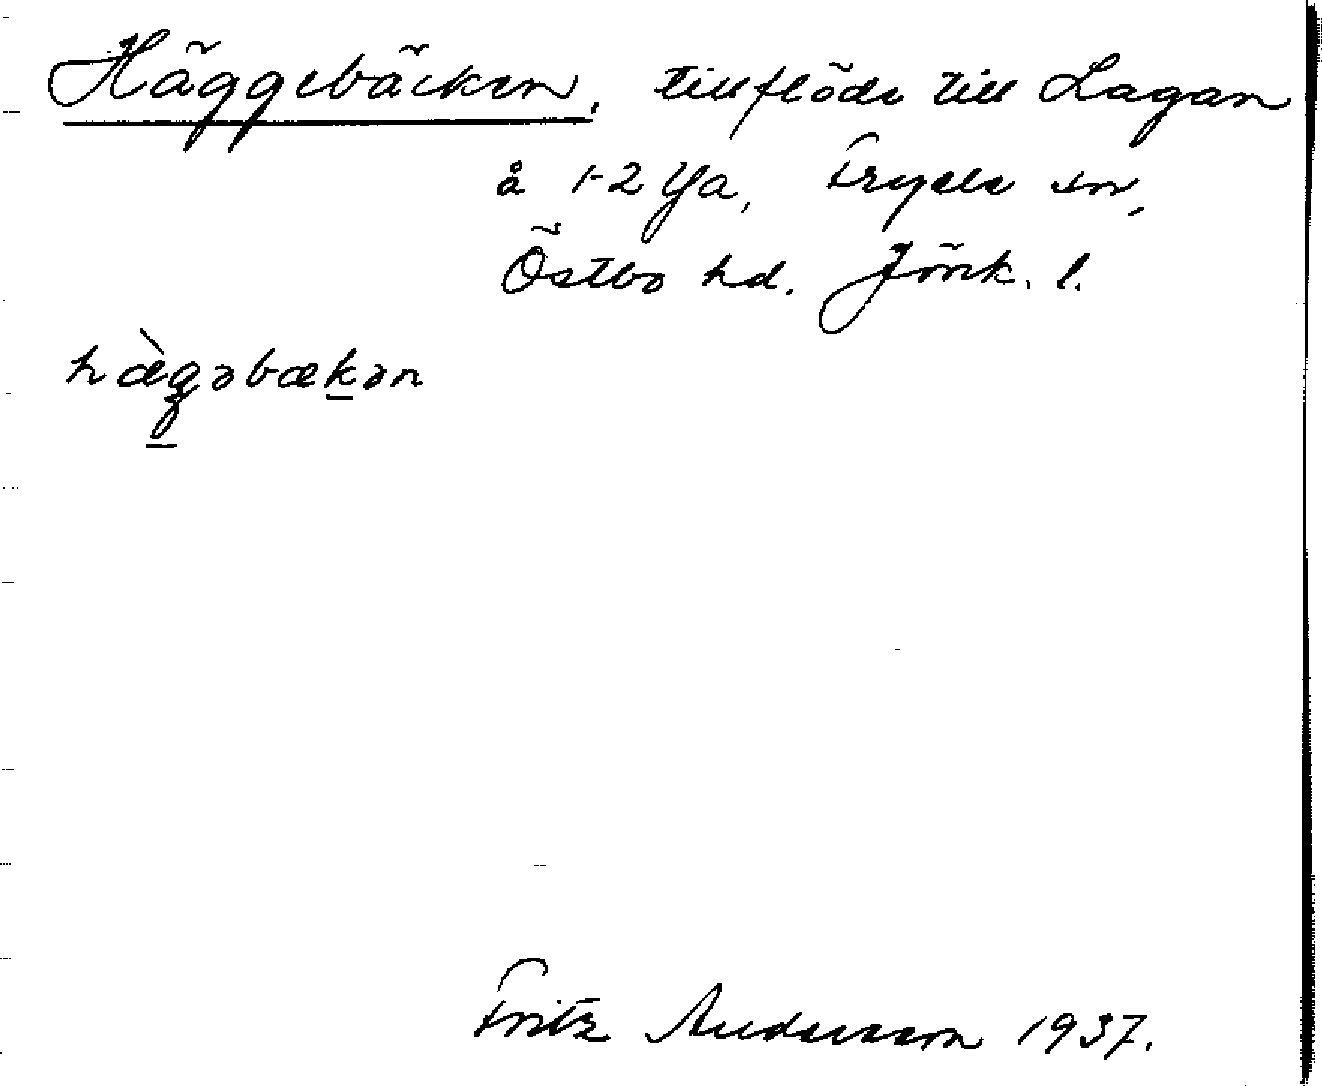 Häggebäcken, tillflöde till Lagan
å 1-2 Ya, Fryele sn,
Östbo hd. Jönk. l.
hæ̀gəbækən
Fritz Andersson 1937.